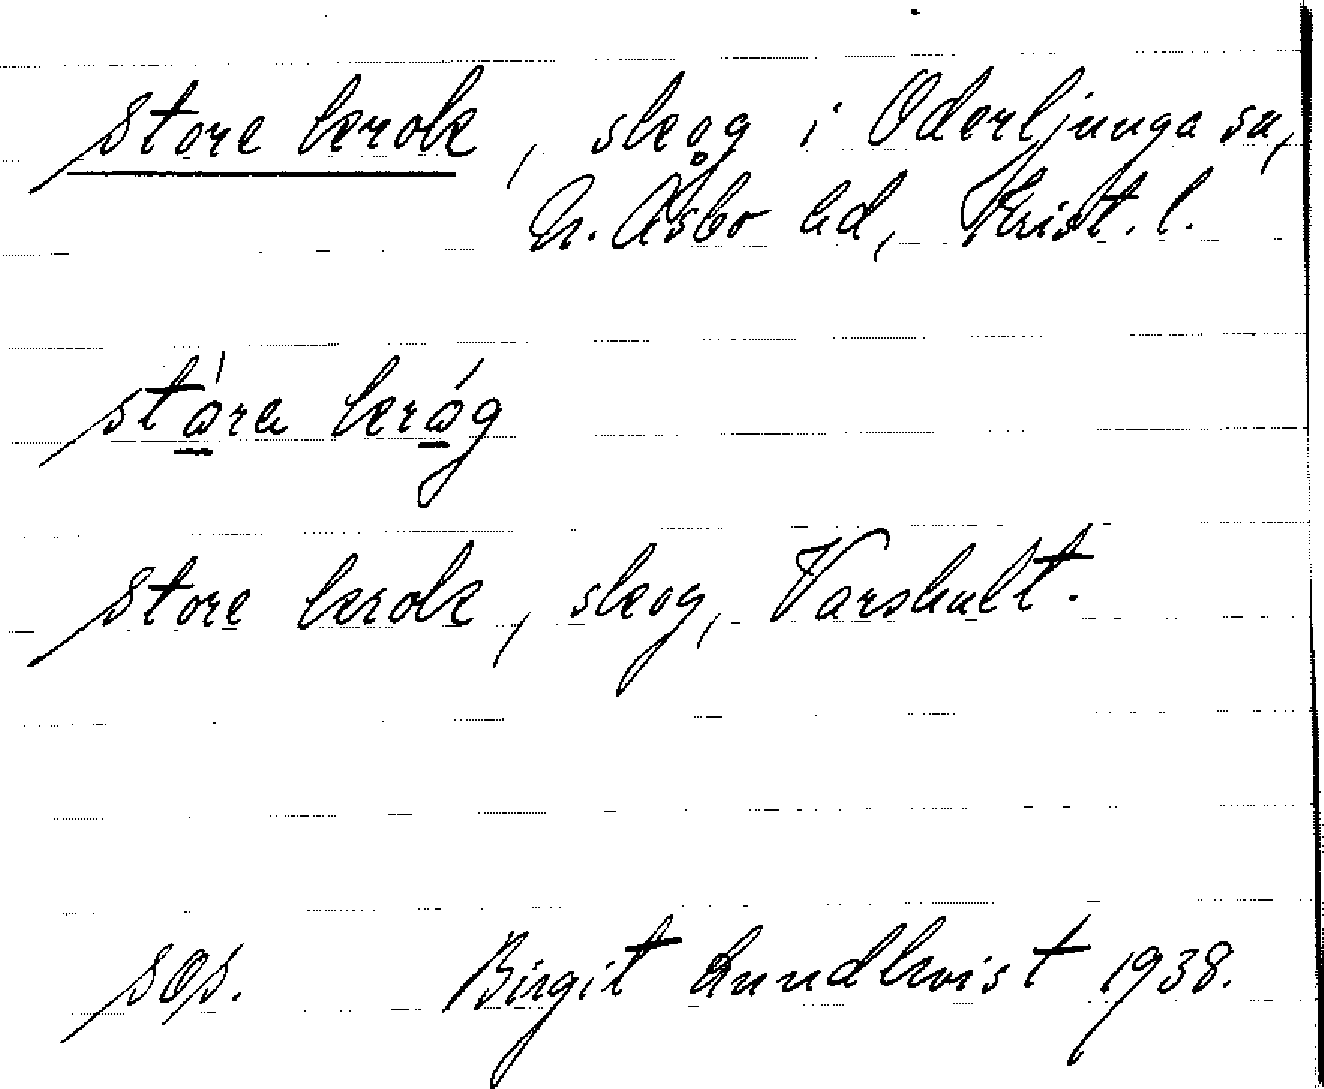 Store krok, skog i Oderljunga sn,
N. Åsbo hd, Krist. l.
stora kråg
Store krok, skog, Varshult.
sos. Birgit Lundkvist 1938.